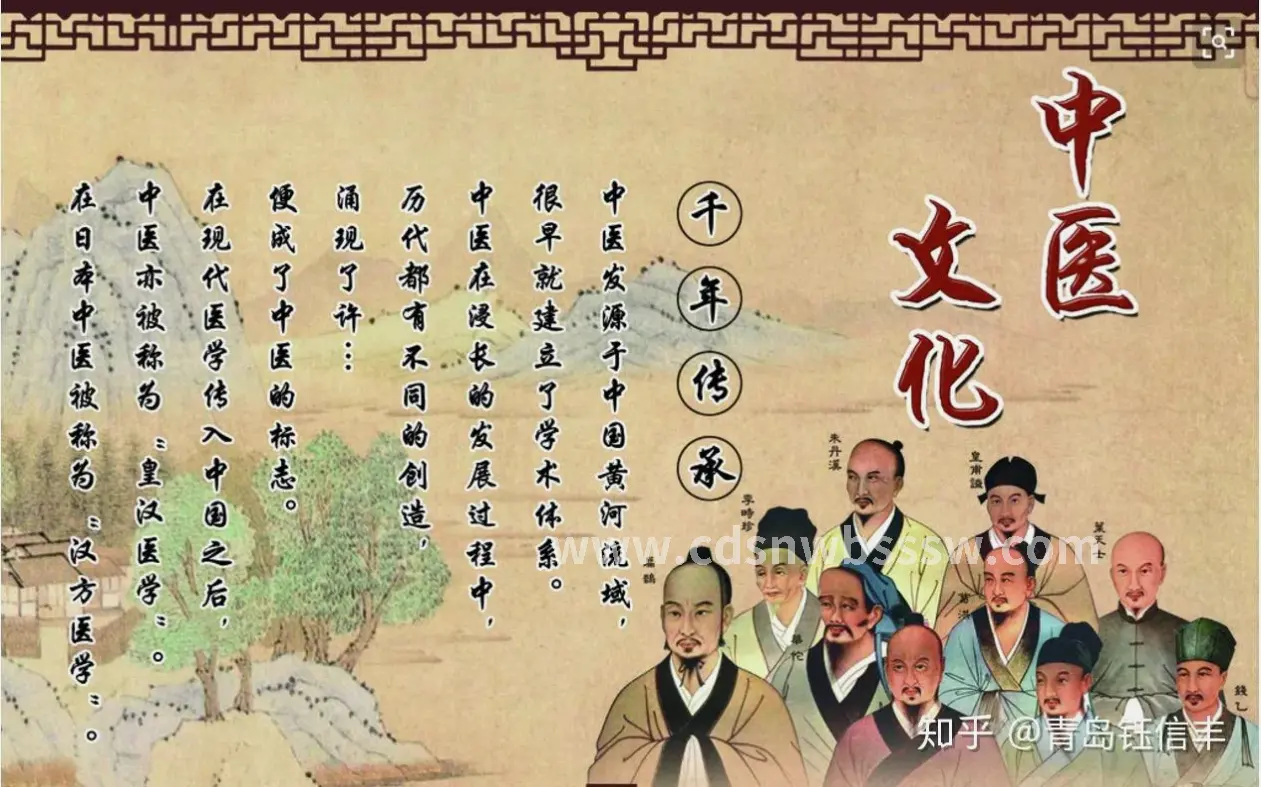 中医
文化
千年传承
中医发源于中国黄河流域，
很早就建立了学术体系。
中医在浸长的发展过程中，
历代都有不同的创造，
涌现了许…
便成了中医的标志。
在现代医学传入中国之后，
中医亦被称为“皇汉医学”。
在日本中医被称为“汉方医学”。
皇甫謐
朱丹溪
葉天士
李時珍
扁鵲
葛洪
華佗
錢乙
www.cdsnwbsssw.com
知乎 @青岛钰信丰